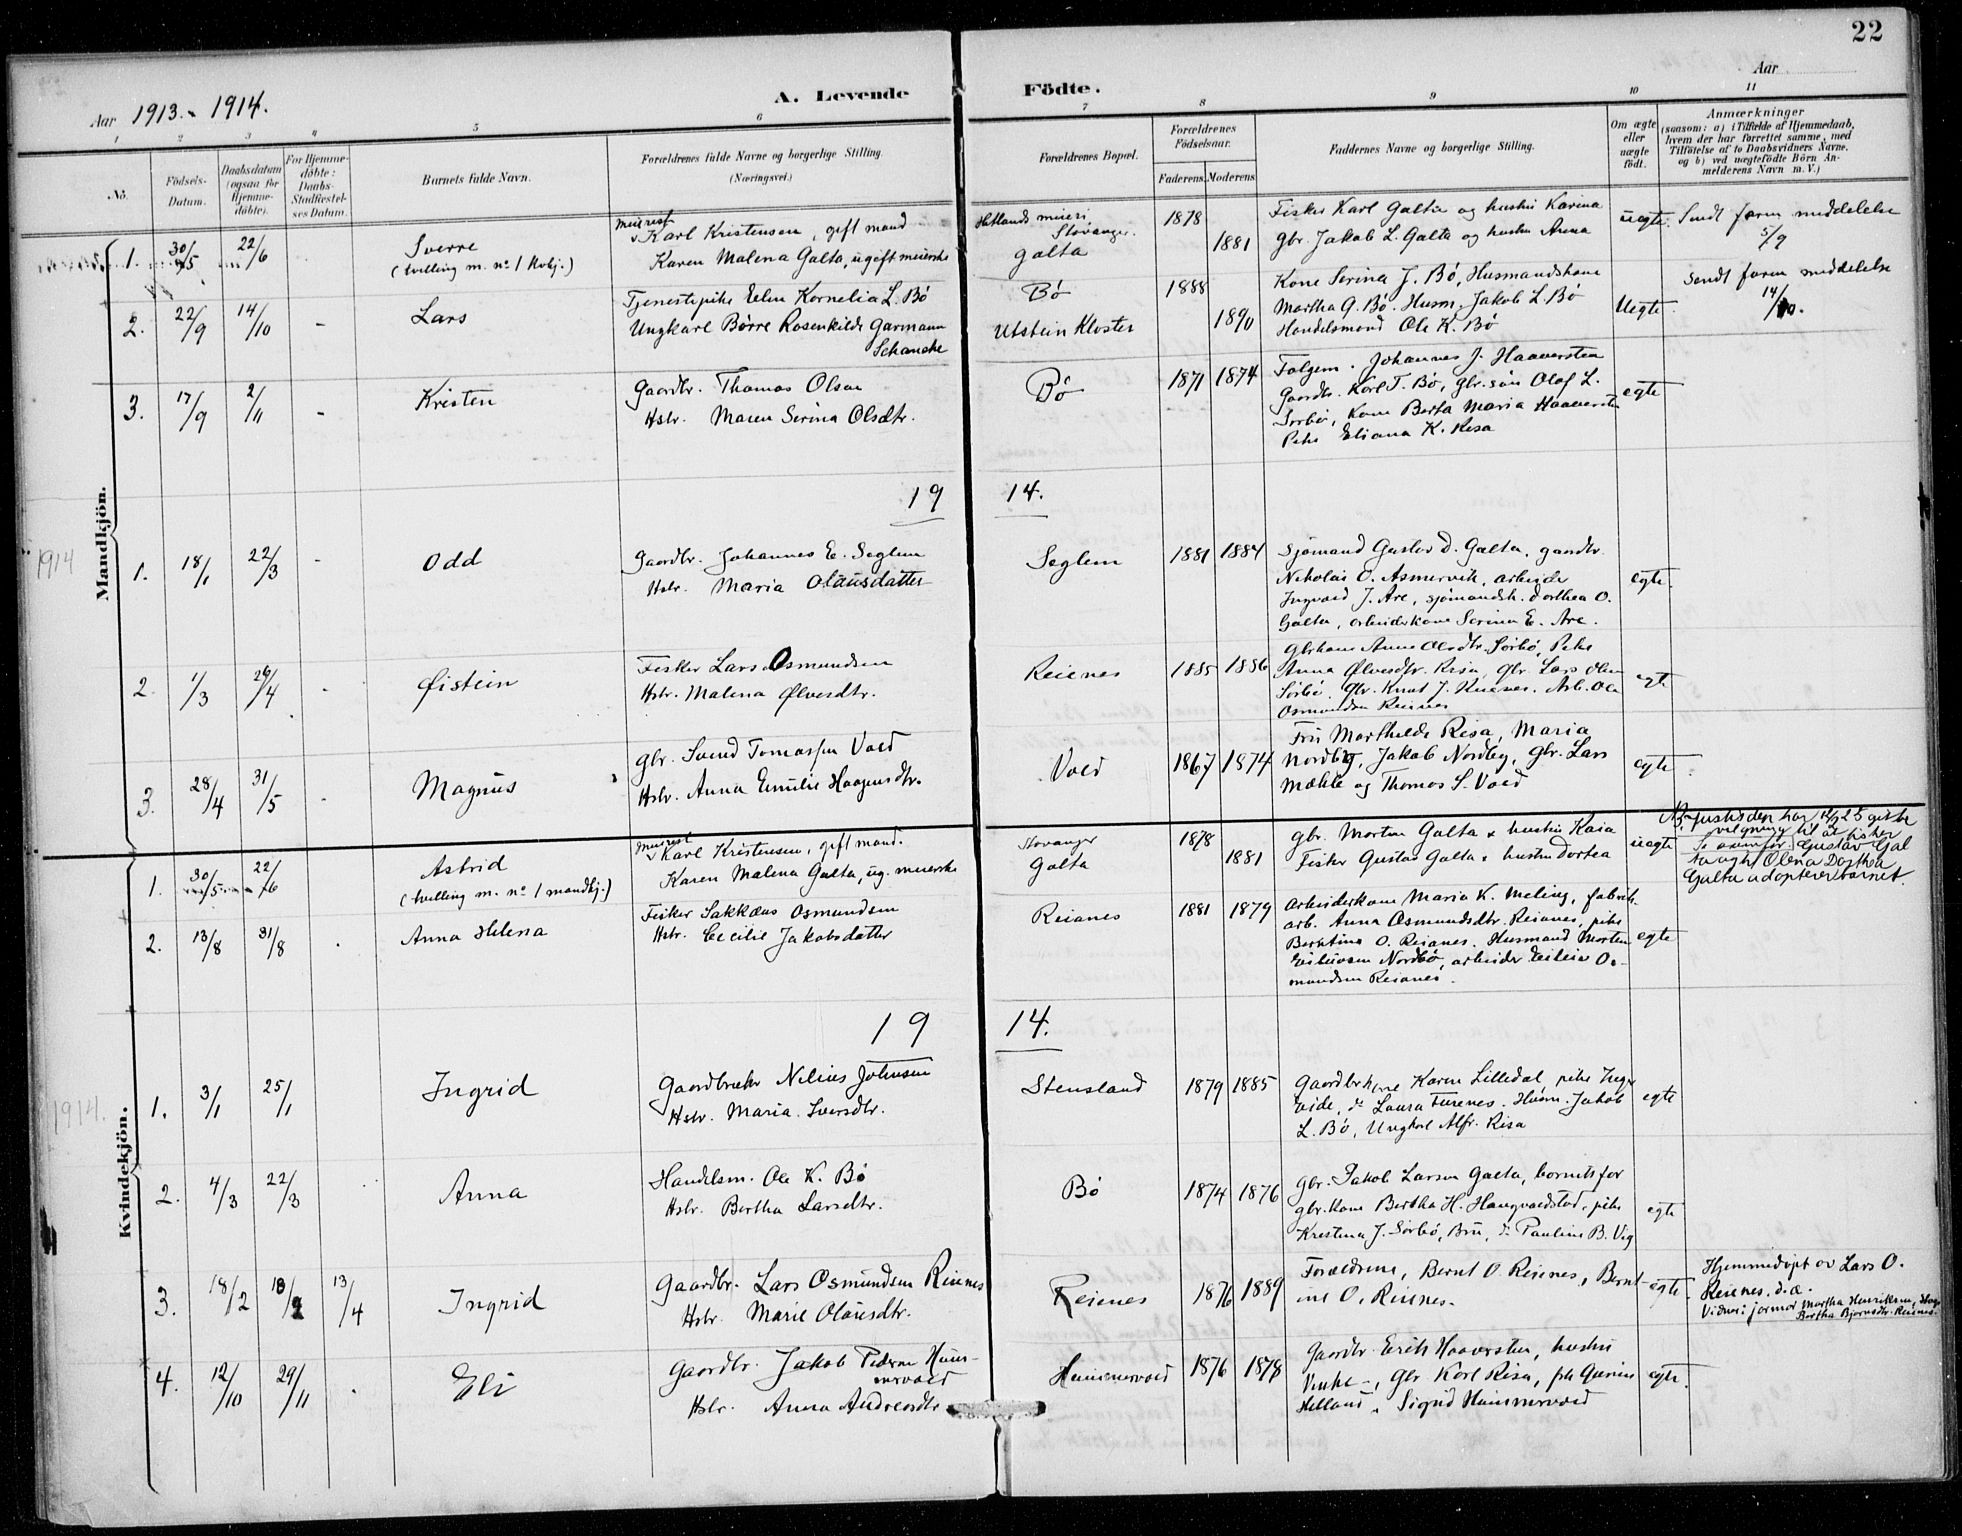 22
Aar 1913 - 1914.
A. Levende Födte.
Aar
1 2 3 4 5 6 7 8 9 10 11
No.
Födsels-Datum.
Daabsdatum (ogsaa for Hjemme-döbte).
For Hjemme-döbte: Daabs-Stadfæstel-ses Datum.
Barnets fulde Navn.
Forældrenes fulde Navne og borgerlige Stilling. (Næringsvei.)
Forældrenes Bopæl.
Forældrenes Fødselsaar.
Faderens. Moderens.
Faddernes Navne og borgerlige Stilling.
Om ægte eller uægte födt.
Anmærkninger
(saasom: a) i Tilfælde af Hjemmedaab,
hvem der har forrettet samme, med
Tilföielse af to Daabsvidners Navne.
og b) ved uægtefödte Börn An-
melderens Navn m. V.)
Mandkjön.
1. 30/5 22/6
Sverre
(tvilling m. no 1 kvkj.)
Meierist Karl Kristensen, gift mand
Karen Malena Galta, ugift meierske
Hetlands meieri Stavanger.
Galta
1878 1881
Fisker Karl Galta og hustru Karina
gbr. Jakob L. Galta og hustru Anna
uegte.
Sendt form meddelelse 5/9
2. 22/9 14/10 -
Lars
Tjenestepike Elen Kornelia L. Bø
Ungkarl Børre Rosenkilde Garmann
Schancke
Bø
Utstein Kloster
1888 1890
Kone Serina J. Bø, Husmandskone
Martha G. Bø. Husm. Jakob L. Bø
Handelsmand Ole K. Bø
Uegte.
Sendt form meddelelse 14/10.
3. 17/9 2/11 -
Kristen
Gaardbr. Thomas Olsen
Hstr. Maren Serina Olsdtr.
Bø
1871 1874
Folgem. Johannes J. Haaversten
Gaardbr. Karl T. Bø, gbr. søn Olaf L.
Sørbø, Kone Berta Maria Haaversten
Pike Eliana K. Risa
egte
19 14.
1914
1. 18/1 22/3 -
Odd
Gaardbr. Johannes E. Seglem
Hstr. Maria Olausdatter
Seglem
1881 1884
Sjømand Gustav D. Galta, gaardbr.
Nikolai O. Asmervik, arbeider
Ingvald J. Are, sjømandsk. Dorthea O.
Galta, arbeiderkone Serina E. Are.
egte.
2. 1/3 26/4 -
Øistein
Fisker Lars Osmundsen
Hstr. Malena Ølversdtr.
Reienes
1885 1886
Gbrkone Anne Olsdtr. Sørbø, Pike
Anna Ølversdtr. Risa, Gbr. Lars Olsen
Sørbø, Gbr. Knut J. Reienes. Arb. Ole
Osmundsen Reienes
egte
3. 28/4 31/5 -
Magnus
gbr. Svend Tomassen Vold
Hstr. Anna Emilie Haagensdtr.
Vold
1867 1874
Fru Marthilde Risa, Maria
Nordby, Jakob Nordby, Gbr. Lars
Mæhle og Thomas S. Vold
egte
Kvindekjön.
1. 30/5 22/6
Astrid
(tvilling m. no 1 mandkj.)
Meierist Karl Kristensen, gift mand.
Karen Malena Galta, ug. meierske
Stavanger
Galta
1878 1881
gbr. Morten Galta & hustru Kaia
Fisker Gustav Galta & hustru Dortea
uegte
Se ovenfor.
Olena Dorthea
Galta adopterer barnet.
2. 13/8 31/8 -
Anna Helena
Fisker Sakkæus Osmundsen
Hstr. Cecilie Jakobsdatter
Reianes
1881 1879
Arbeiderkone Maria K. Meling, fabrik-
arb. Anna Osmundsdtr. Reianes, pike
Berntina O. Reianes. Husmand Morten
Nordbø, arbeider Eilein Os-
mundsen Reianes.
egte
19 14.
1914.
1. 3/1 25/1
Ingrid
Gaardbruker Nilius Johnsen
Hstr. Maria Iversdtr.
Stensland
1879 1885
Gaardbrkone Karen Lilledal, pike Inga
Eide, do Laura Furenes. Husm. Jakob
L. Bø, Ungkarl Alfr. Risa
egte
2. 4/3 22/3
Anna
Handelsm. Ole K. Bø
Hstr. Bertha Larsdtr.
Bø
1874 1876
gbr. Jakob Larsen Galta,
gbr. kone Bertha H. Haugvaldstad, pike
Kristina J. Sørbø, Bru, do Pauline B. Vig
egte
3. 18/2 18/2 13/4
Ingrid
Gaardbr. Lars Osmundsen Reienes
Hstr. Marie Olausdtr.
Reienes
1876 1889
Forældrene, Bernt O. Reienes, Bernt-
ine O. Reienes.
egte.
Hjemmedøpt av Lars O.
Reienes. d.æ.
Vidner: formor Martha Henriksen,
Bertha Bjørnsdtr. Reienes.
4. 12/10 29/11 -
Eli
Gaardbr. Jakob Pedersen Hum-
mervold
Hstr. Anna Andreasdtr.
Hummervold
1876 1878
Gaardbr. Erik Haaversten, hustru
Vinke -, Gbr. Karl Risa, pk Gurine
Helland, Sigrid Hummervold
egte.